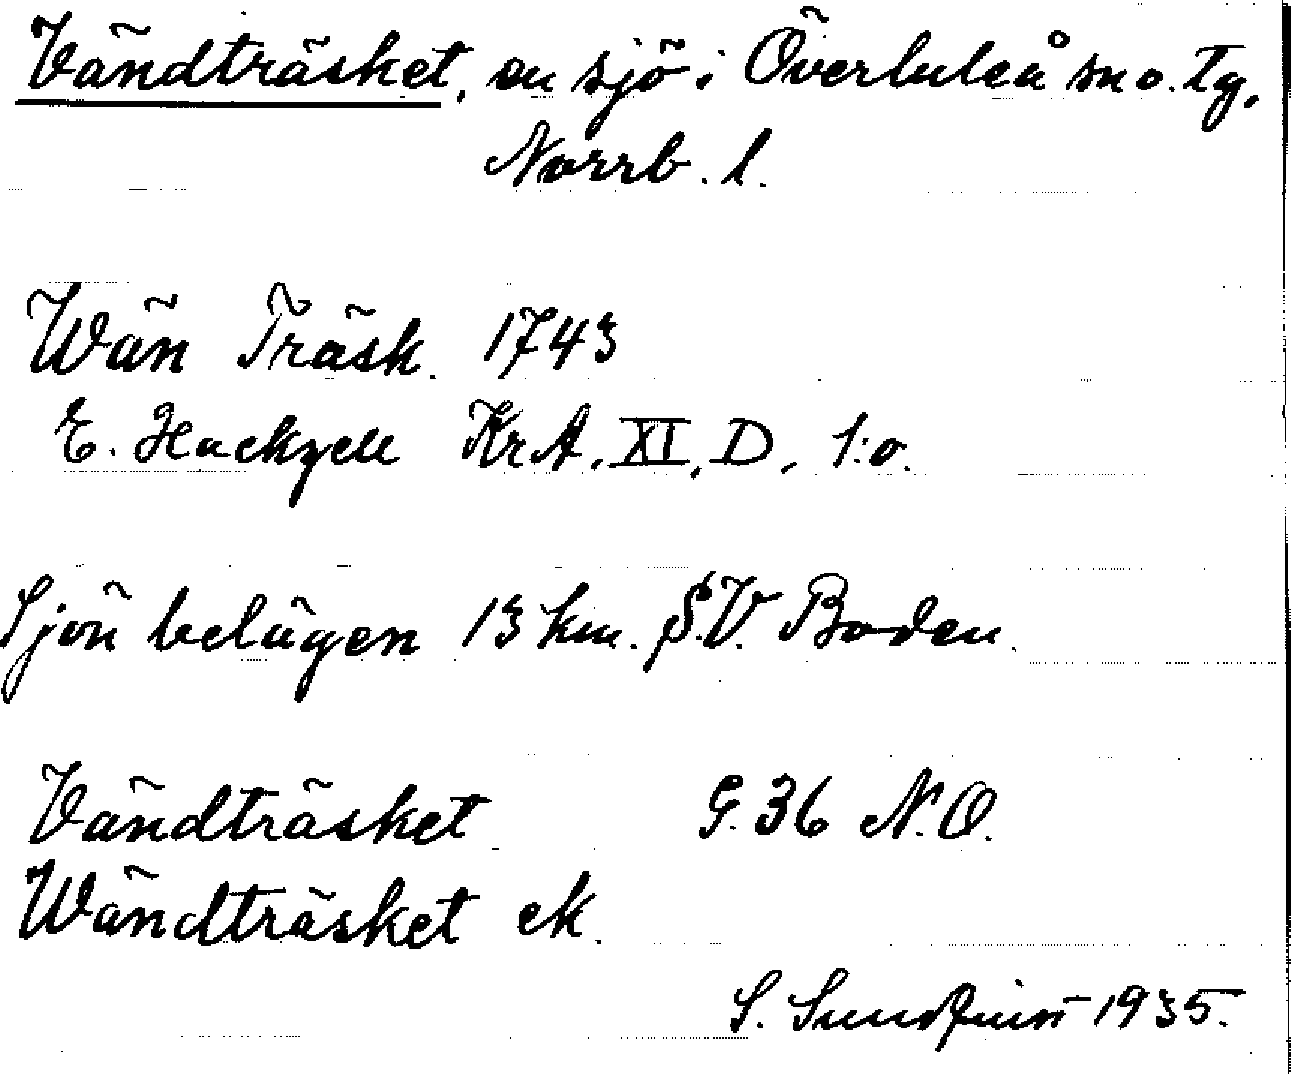 Vändträsket, en sjö i Överluleå sn o. tg,
Norrb. l.
Wän Träsk. 1743
E. Hackzell KrA. XI, D, 1:o.
Sjön belägen 13 km. S.V. Boden.
Vändträsket G. 36 N.O.
Wändträsket ek.
S. 1935.